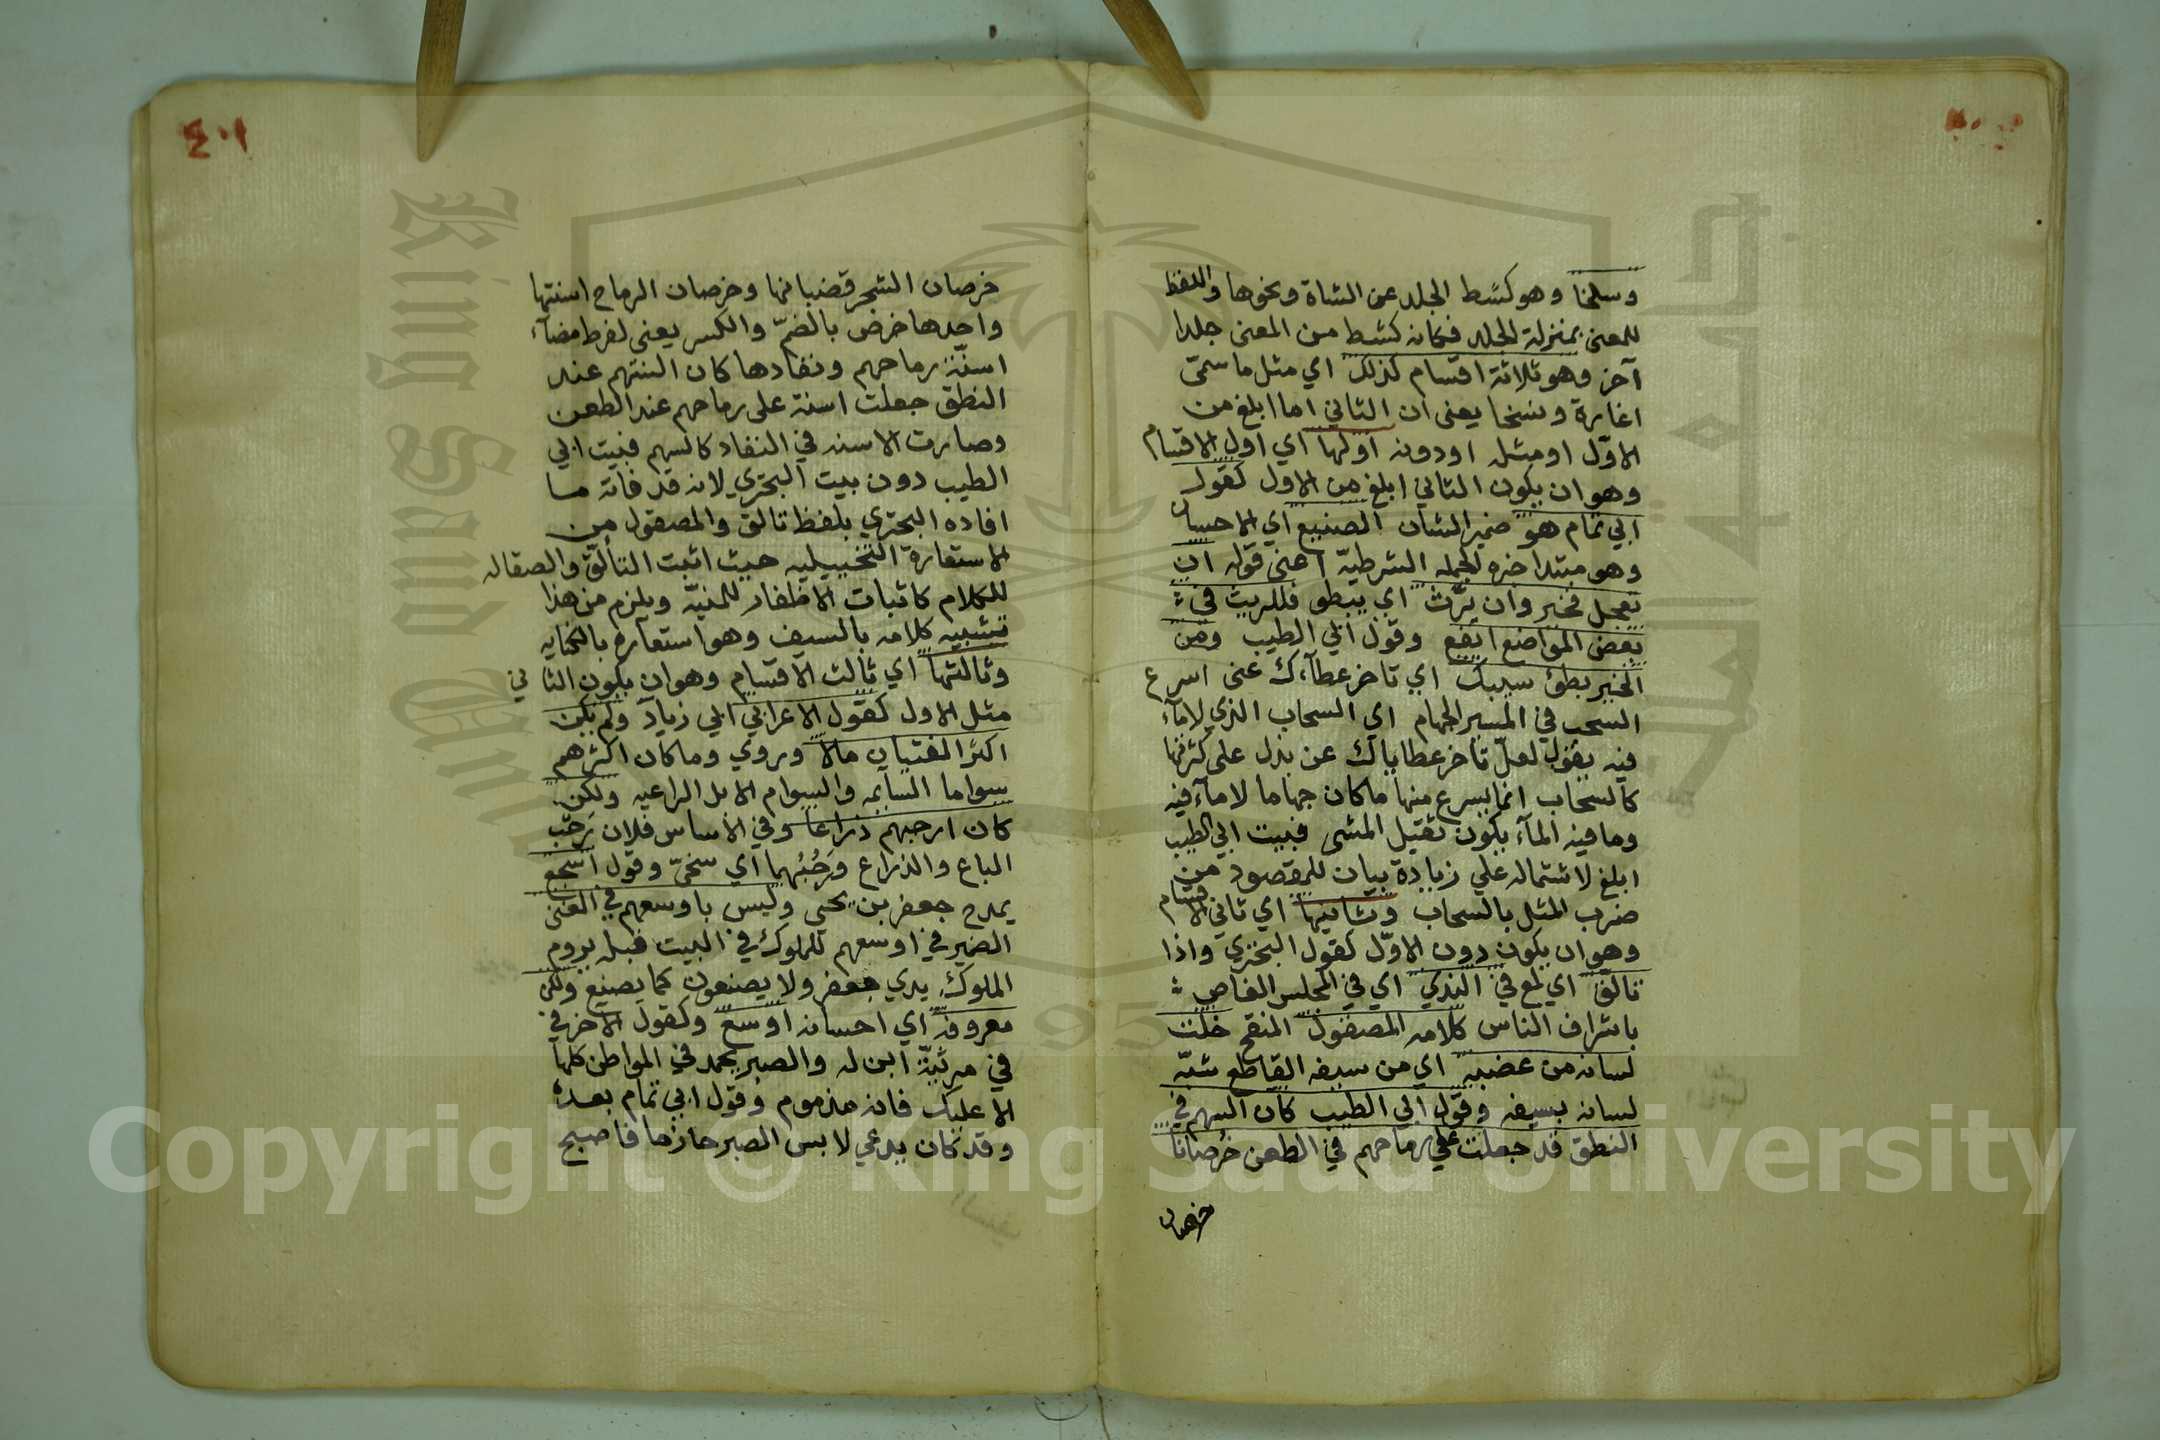 وسلخا وهو كشط الجلد عن الشاة ونحوها واللفظ
للمعنى بمنزلة الجلد فكانه كشط من المعنى جلدا
آخر وهو ثلاثة اقسام كذلك اي مثل ما سمي
اغارة ونسخا يعني ان الثاني اما ابلغ من
الاول او مثله او دونه اولها اي اول الاقسام
وهو ان يكون الثاني ابلغ من الاول كقول
ابي تمام هو ضمير الشان الصنيع اي الاحسان
وهو مبتدا خبره الجمله الشرطيّة اعني قوله ان
تعجل فخير وان يَرُث اي يبطو فللريث في
بعض المواضع انفع وقول ابي الطيب ومن
الخير بطؤ سيبك اي تاخر عطآءك عنى اسرع
السحب في المسير الجهام اي السحاب الذي لا مآء
فيه يقول لعلّ تاخر عطاياك عن يدل على كثرتها
كالسحاب انما يسرع منها ما كان جهاما لا مآء فيه
وما فيه المآء يكون ثقيل المشى فبيت ابي الطيب
ابلغ لاشتماله علي زيادة بيان للمقصود من
ضرب المثل بالسحاب وثانيها اي ثاني الاقسام
وهو ان يكون دون الاوّل كقول البحتري واذا
تالّق اي لمع في الندي اي في المجلس الغاص
باشراف الناس كلامه المصقول المنقح خلت
لسانه من عضبه اي من سيفه القاطع شبّه
لسانه بسيفه وقول ابي الطيب كان السهم في
النطق قد جعلت علي رماحهم في الطعن خُرصانا
خرصان
٤٠١
خرصان الشجر قضبانها وخرصان الرماح اسنتها
واحدها خرص بالضمّ والكسر يعني لفرط مضآء
اسنّة رماحهم ونفادها كان السنتهم عند
النطق جعلت اسنة على رماحهم عند الطعن
وصارت الاسنه في النفاد كالسهم فبيت ابي
الطيب دون بيت البحتري لانه قد فاته ما
افاده البحتري بلفظ تالق والمصقول من
الاستعارة التخييليه حيث اثبت التألّق والصقاله
للكلام كاثبات الاظفار للمنيّة ويلزم من هذا
تشبيه كلامه بالسيف وهو استعاره بالكنايه
وثالثها اي ثالث الاقسام وهو ان يكون الثاني
مثل الاول كقول الاعرابي ابي زياد ولم يكن
اكثر الفتيان مالا وروي وما كان اكثرهم
سواما السآيمه والسوام الابل الراعيه ولكن
كان ارحبهم ذراعا وفي الاساس فلان رَحْب
الباع والذراع ورَحْبُهما اي سخىّ وقول اشجع
يمدح جعفر بن يحيي وليس باوسعهم في الغنى
الضمير في اوسعهم للملوك في البيت قبله يروم
الملوك يدي جعفر ولا يصنعون كما يصنع ولكن
معروفه اي احسانه اوسع وكقول الاخر في
في مرثيّة ابن له والصبر يحمد في المواطن كلها
الا عليك فانه مذموم وقول ابي تمام بعده
وقد كان يدعي لابس الصبر حازما فاصبح
King Saud University
Copyright © King Saud University
1957